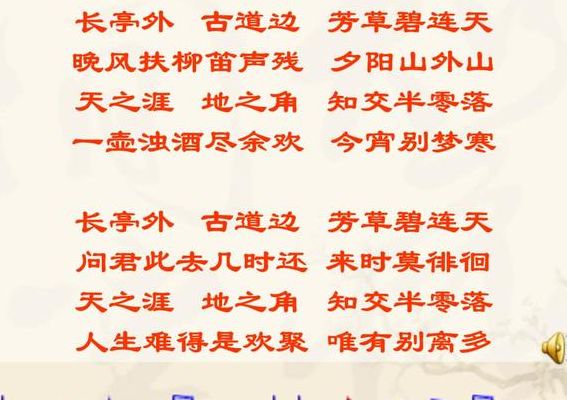 长亭外 古道边 芳草碧连天
晚风扶柳笛声残 夕阳山外山
天之涯 地之角 知交半零落
一壶浊酒尽余欢 今宵别梦寒
长亭外 古道边 芳草碧连天
问君此去几时还 来时莫徘徊
天之涯 地之角 知交半零落
人生难得是欢聚 唯有别离多